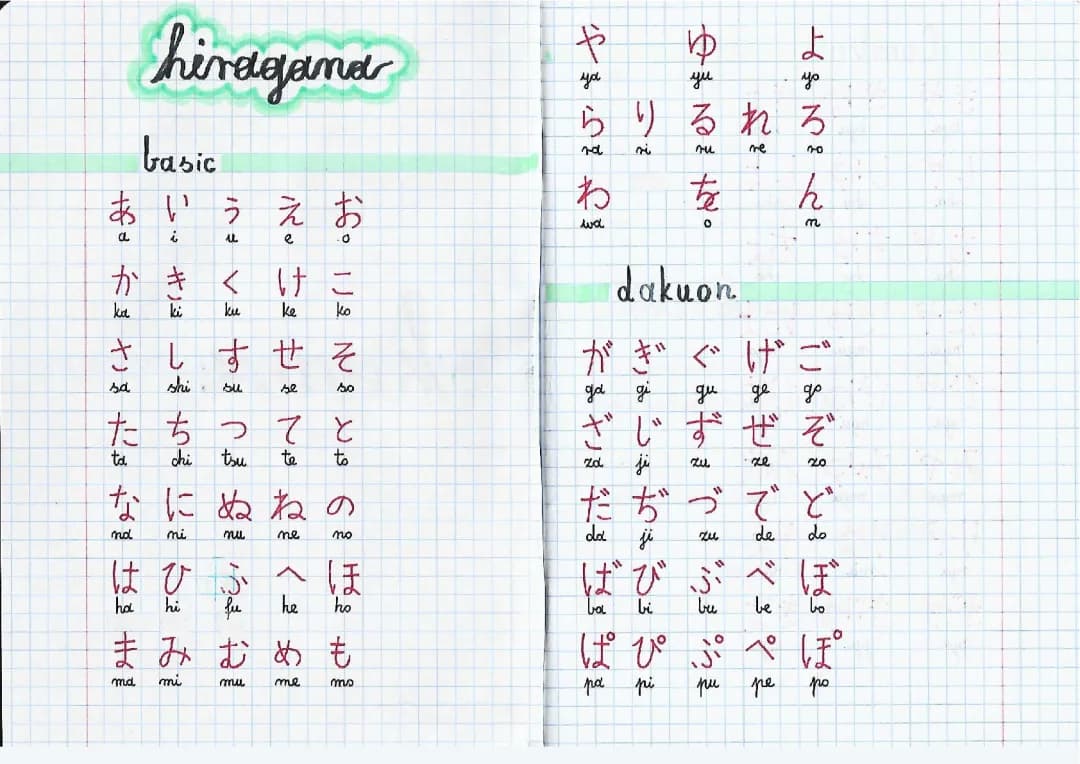 hiragana
basic
あ い う え お
a i u e o
か き く け こ
ka ki ku ke ko
さ し す せ そ
sa shi su se so
た ち つ て と
ta chi tsu te to
な に ぬ ね の
na ni nu ne no
は ひ ふ へ ほ
ha hi fu he ho
ま み む め も
ma mi mu me mo
や ゆ よ
ya yu yo
ら り る れ ろ
ra ri ru re ro
わ を ん
wa o n
dakuon
が ぎ ぐ げ ご
ga gi gu ge go
ざ じ ず ぜ ぞ
za ji zu ze zo
だ ぢ づ で ど
da ji zu de do
ば び ぶ べ ぼ
ba bi bu be bo
ぱ ぴ ぷ ぺ ぽ
pa pi pu pe po